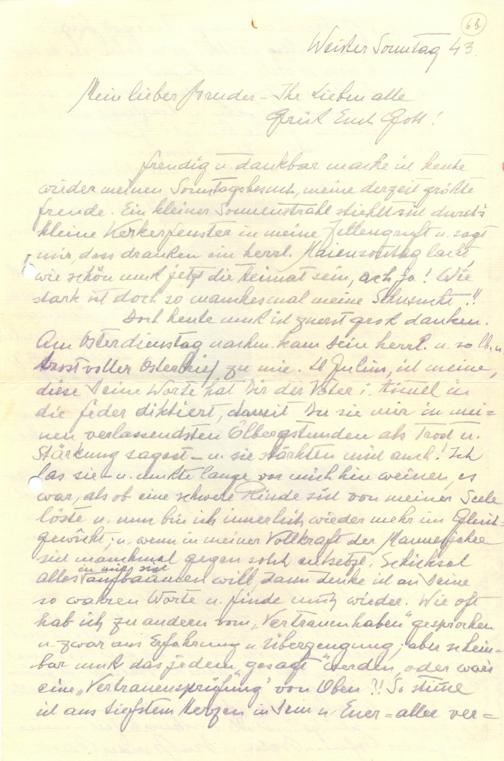 63
Weißer Sonntag 43.
Mein lieber Bruder – Ihr Lieben alle
Grüß Euch Gott!
freudig u. dankbar mache ich heute
wieder meinen Sonntagsbesuch, meine derzeit größte
Freude. Ein kleiner Sonnenstrahl stiehlt sich durchs
kleine Kerkerfenster in meine Zellengruft u. sagt
mir, dass draußen ein herrl. Maiensonntag lacht,
wie schön muß jetzt die Heimat sein, ach ja! Wie
stark ist doch so manchesmal meine Sehnsucht!!
Doch heute muß ich zuerst groß danken.
Am Osterdienstag nachm. kam Dein herrl. u. so lb. u.
trostvoller Osterbrief zu mir. Lb Julius, ich meine,
diese Deine Worte hat Dir der Vater i. Himmel in
die Feder diktiert, damit Du sie mir in mei-
nen verlassendsten Ölbergstunden als Trost u.
Stärkung sagest – u. sie stärkten mich auch! Ich
las sie – u. mußte lange vor mich hin weinen, es
war, als ob eine schwere Rinde sich von meiner Seele
löste u. nun bin ich innerlich wieder mehr im Gleich-
gewicht; u. wenn in meiner Vollkraft der Mannesjahre
sich manchmal gegen solch entsetzl. Schicksal
alles in mir sich aufbäumen will, dann denke ich an Deine
so wahren Worte u. finde mich wieder. Wie oft
hab ich zu andern vom „Vertrauenhaben" gesprochen
u. zwar aus Erfahrung u. Überzeugung; aber schein-
bar muß das jedem „gesagt" werden, oder war's
eine „Vertrauensprüfung" von Oben?! So stimme
ich aus tiefstem Herzen in Dein u. Euer – aller ver-